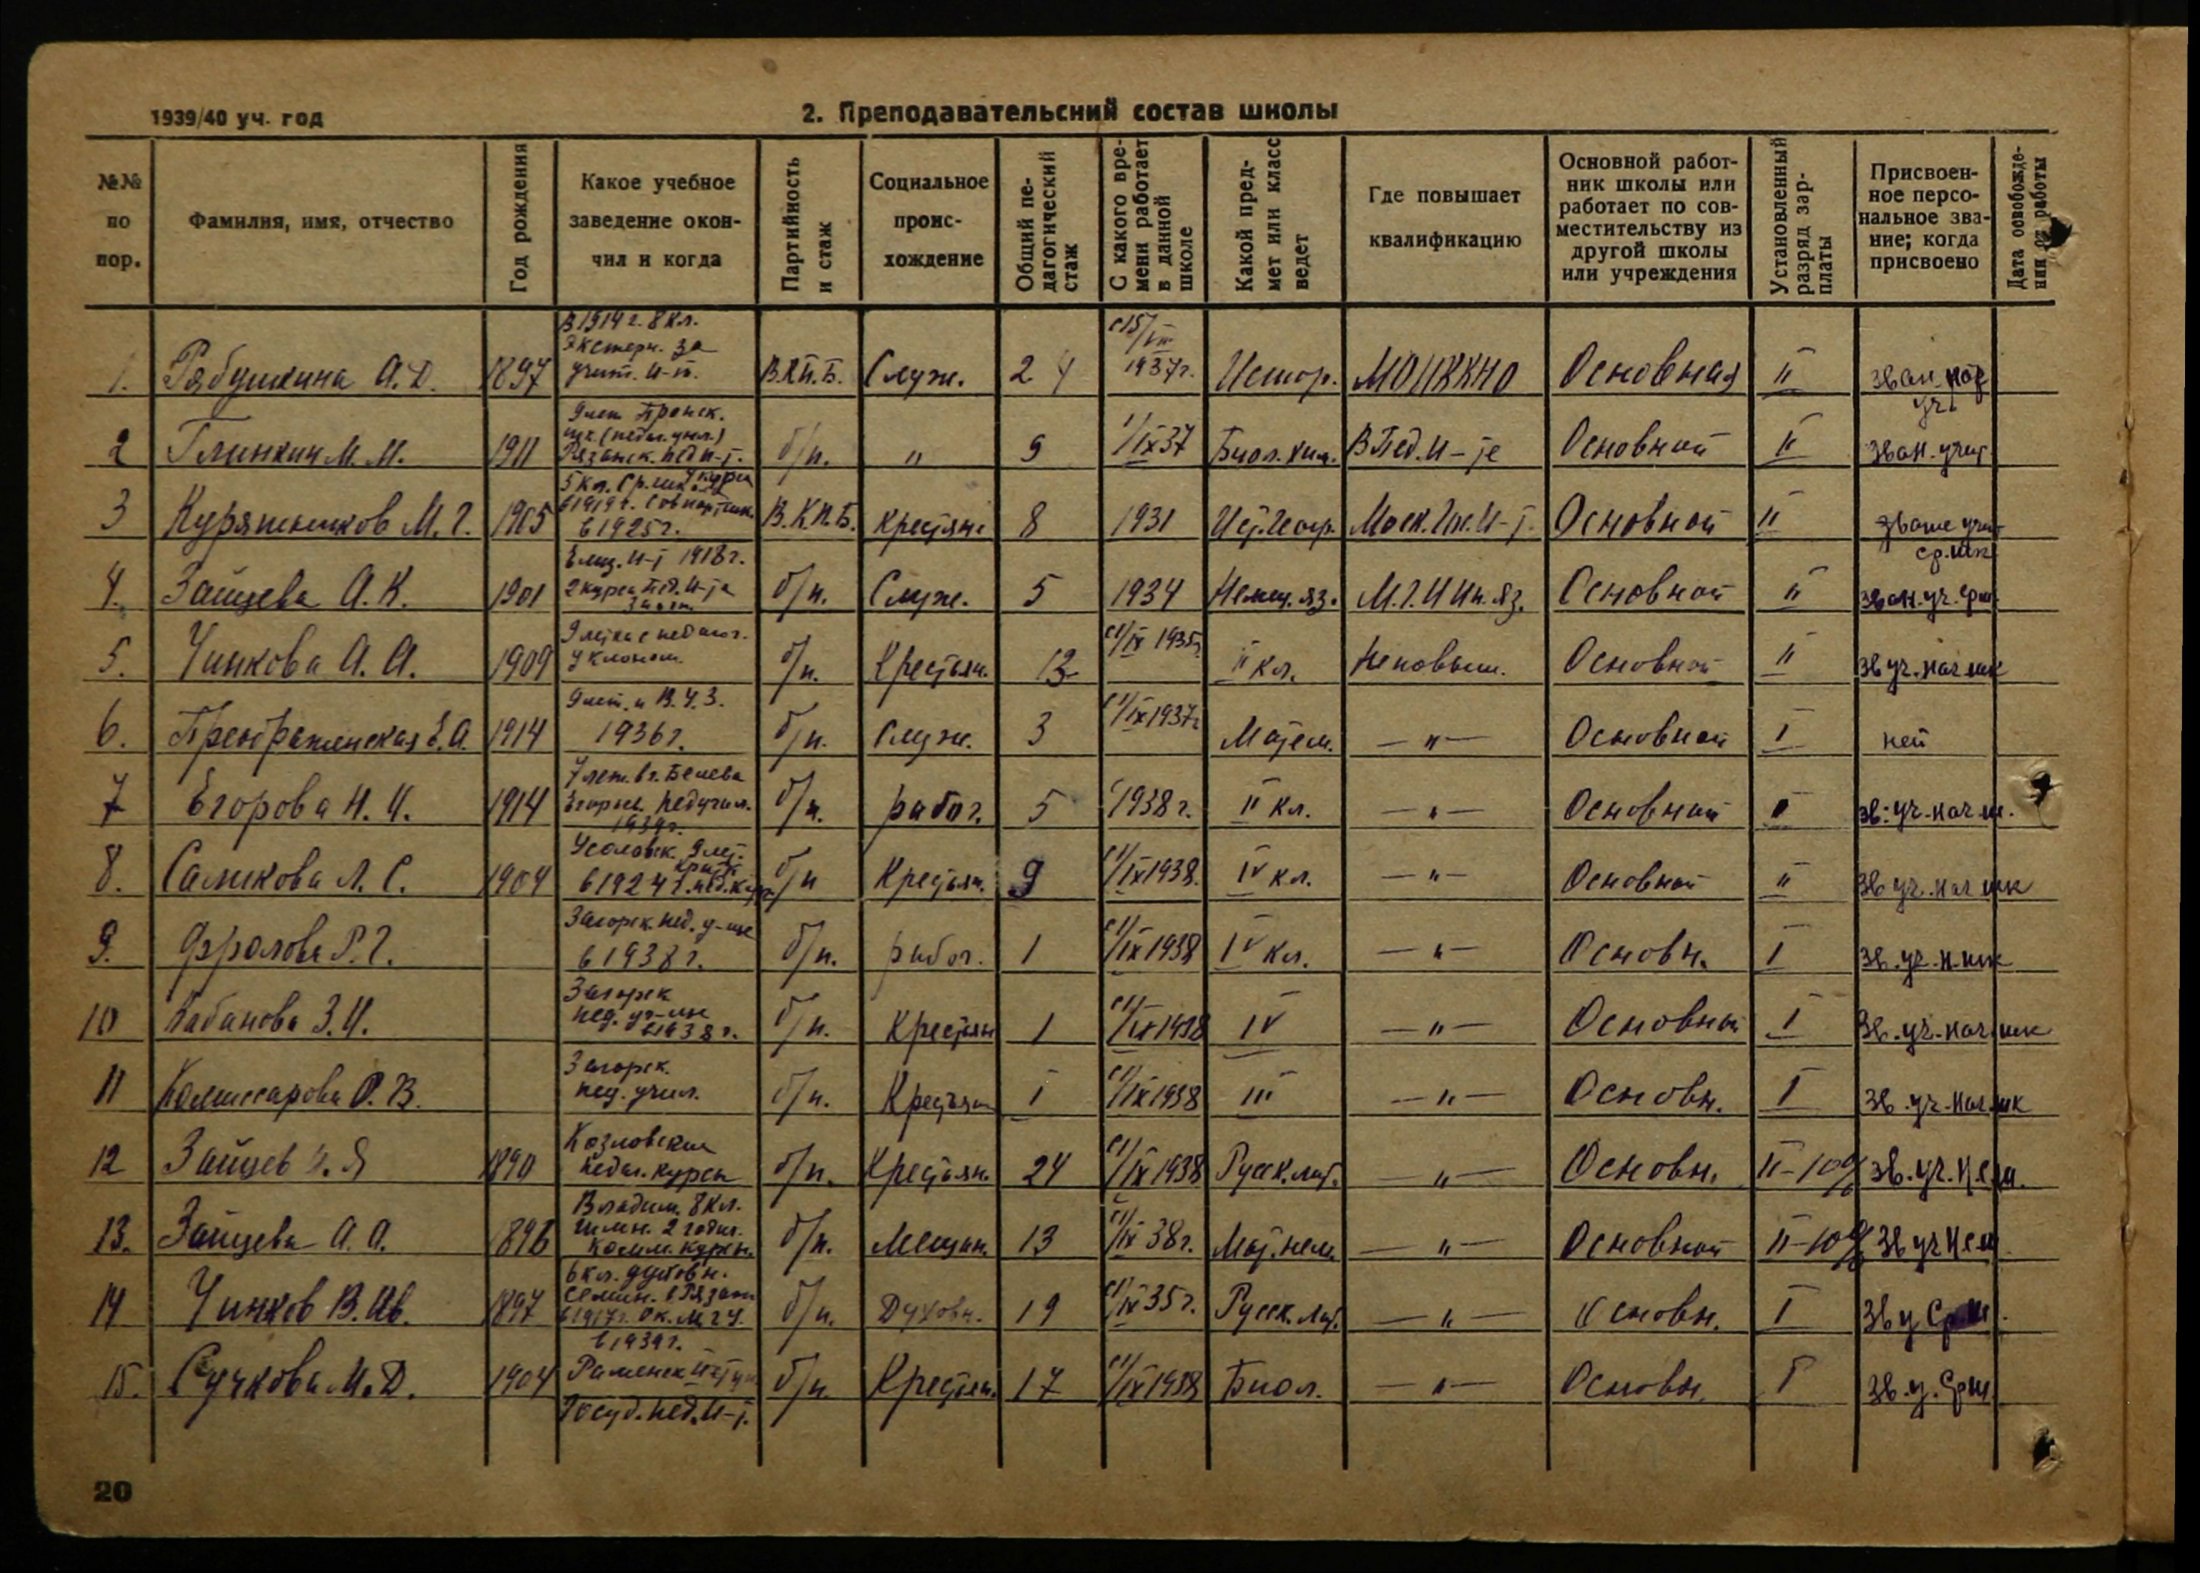 1939/40 уч. год
2. Преподавательский состав школы
№№ по пор.
Фамилия, имя, отчество
Год рождения
Какое учебное заведение окончил и когда
Партийность и стаж
Социальное происхождение
Общий педагогический стаж
С какого времени работает в данной школе
Какой предмет или класс ведет
Где повышает квалификацию
Основной работник школы или работает по совместительству из другой школы или учреждения
Установленный разряд зарплаты
Присвоенное персональное звание; когда присвоено
Дата освобождения от работы
1. Рябушкина А.Д. 1897 В 1914 г. 8 кл. Экстерн. за учит. и-т. В.К.П.Б. Служ. 24 с 15/VIII 1937г. Истор. Основная II зван. нач уч
2 Глинкин М.М. 1911 9 лет Пронск. шк. (педаг. укл.) Рязанск. пед и-т. б/п. " 9 1/IX 37 Биол. хим. В Пед. И-те Основной II зван. учит.
3 М. Г. 1905 5 кл. Ср. шк. в 1919 г. в 1925 г. В.К.П.Б. Крестьян. 8 1931 Ист. Геогр. Основной II ср. шк
4. Зайцева А.К. 1901 Елец. И-т 1918 г. 2 курса Пед. И-та б/п. Служ. 5 1934 Немец. яз. М.Г.И Ин. яз. Основной II зван. уч. ср ш
5. Чинкова А. А. 1909 9 летка с педагог. уклоном. б/п. Крестьян. с 1/IX 1935г. II кл. Не повыш. Основной II зв уч. нач шк
6. Преображенская Е.А. 1914 9 лет. и В.У.З. 1936 г. б/п. Служ. 3 с 1/IX 1937г Матем. — " — Основной I нет
7 Егорова Н. И. 1914 7 лет. в г. Белева Егорьев. педучил. б/п. рабоч. 5 1938 г. II кл. — " — Основной зв. уч. нач ш.
8. Л. С. 1904 9 лет. в 1924 г. б/п Крестьян. 9 с 1/IX 1938. IV кл. — " — Основной II зв уч. нач шк
9. Фролова Р.Г. Загорск. пед. у-ще в 1938 г. б/п. рабоч. 1 с 1/IX 1938 IV кл. — " — Основн. I зв. уч. н. шк
10 Кабанова З.И. Загорск пед. уч-ще в 1938 г. б/п. Крестьян 1 с 1/IX 1938 IV — " — Основной I Зв. уч. нач шк
11 Комиссарова О.В. Загорск. пед. учил. б/п. Крестьян I с 1/IX 1938 III — " — Основн. I зв. уч. нач. шк
12 Зайцев Я 1890 Козловские педаг. курсы б/п. Крестьян. 24 с 1/IX 1938 Русск. лит. — " — Основн. II-10% зв. уч. Н с ш.
13. Зайцева А.А. 1896 Владим. 8 кл. гимн. 2 годич. б/п. Мещан. 13 с 1/IX 38 г. Мат. нем. — " — Основной II-10% Зв уч Н с ш
14 Чинков В. Ив. 1897 6 кл. духовн. семин. в Рязани в 1917 г. Ок. МГУ. в 1939 г. б/п. Духовн. 19 с 1/IX 35 г. Русск. лит. — " — Основн. I Зв у Ср ш.
15. Сучкова М.Д. 1904 Раменск Госуд. пед. И-т. б/п. Крестьян. 17 с 1/IX 1938 Биол. — " — Основн. I зв. у. Ср ш.
20